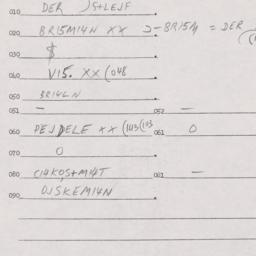 010 DER JS+LEJF
020 BRISMI4N XX J-BRISM = DER
030 $
040 VIS. XX (048
050 BRI4LN
051 – 052 –
060 PEJDELE XX (143(103 061 0
070 0
080 CI4KOS+MI4T 081 –
090 OJSKEMI4N